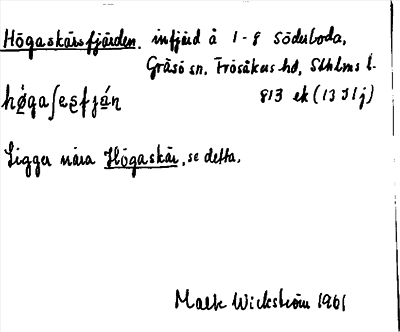 Högaskärsfjärden. infjärd å 1-8 Söderboda,
Gräsö sn. Frösåkers hd, Sthlms l.
813 ek (13 I 1 j)
Ligger nära Högaskär, se detta.
Wickström 1961